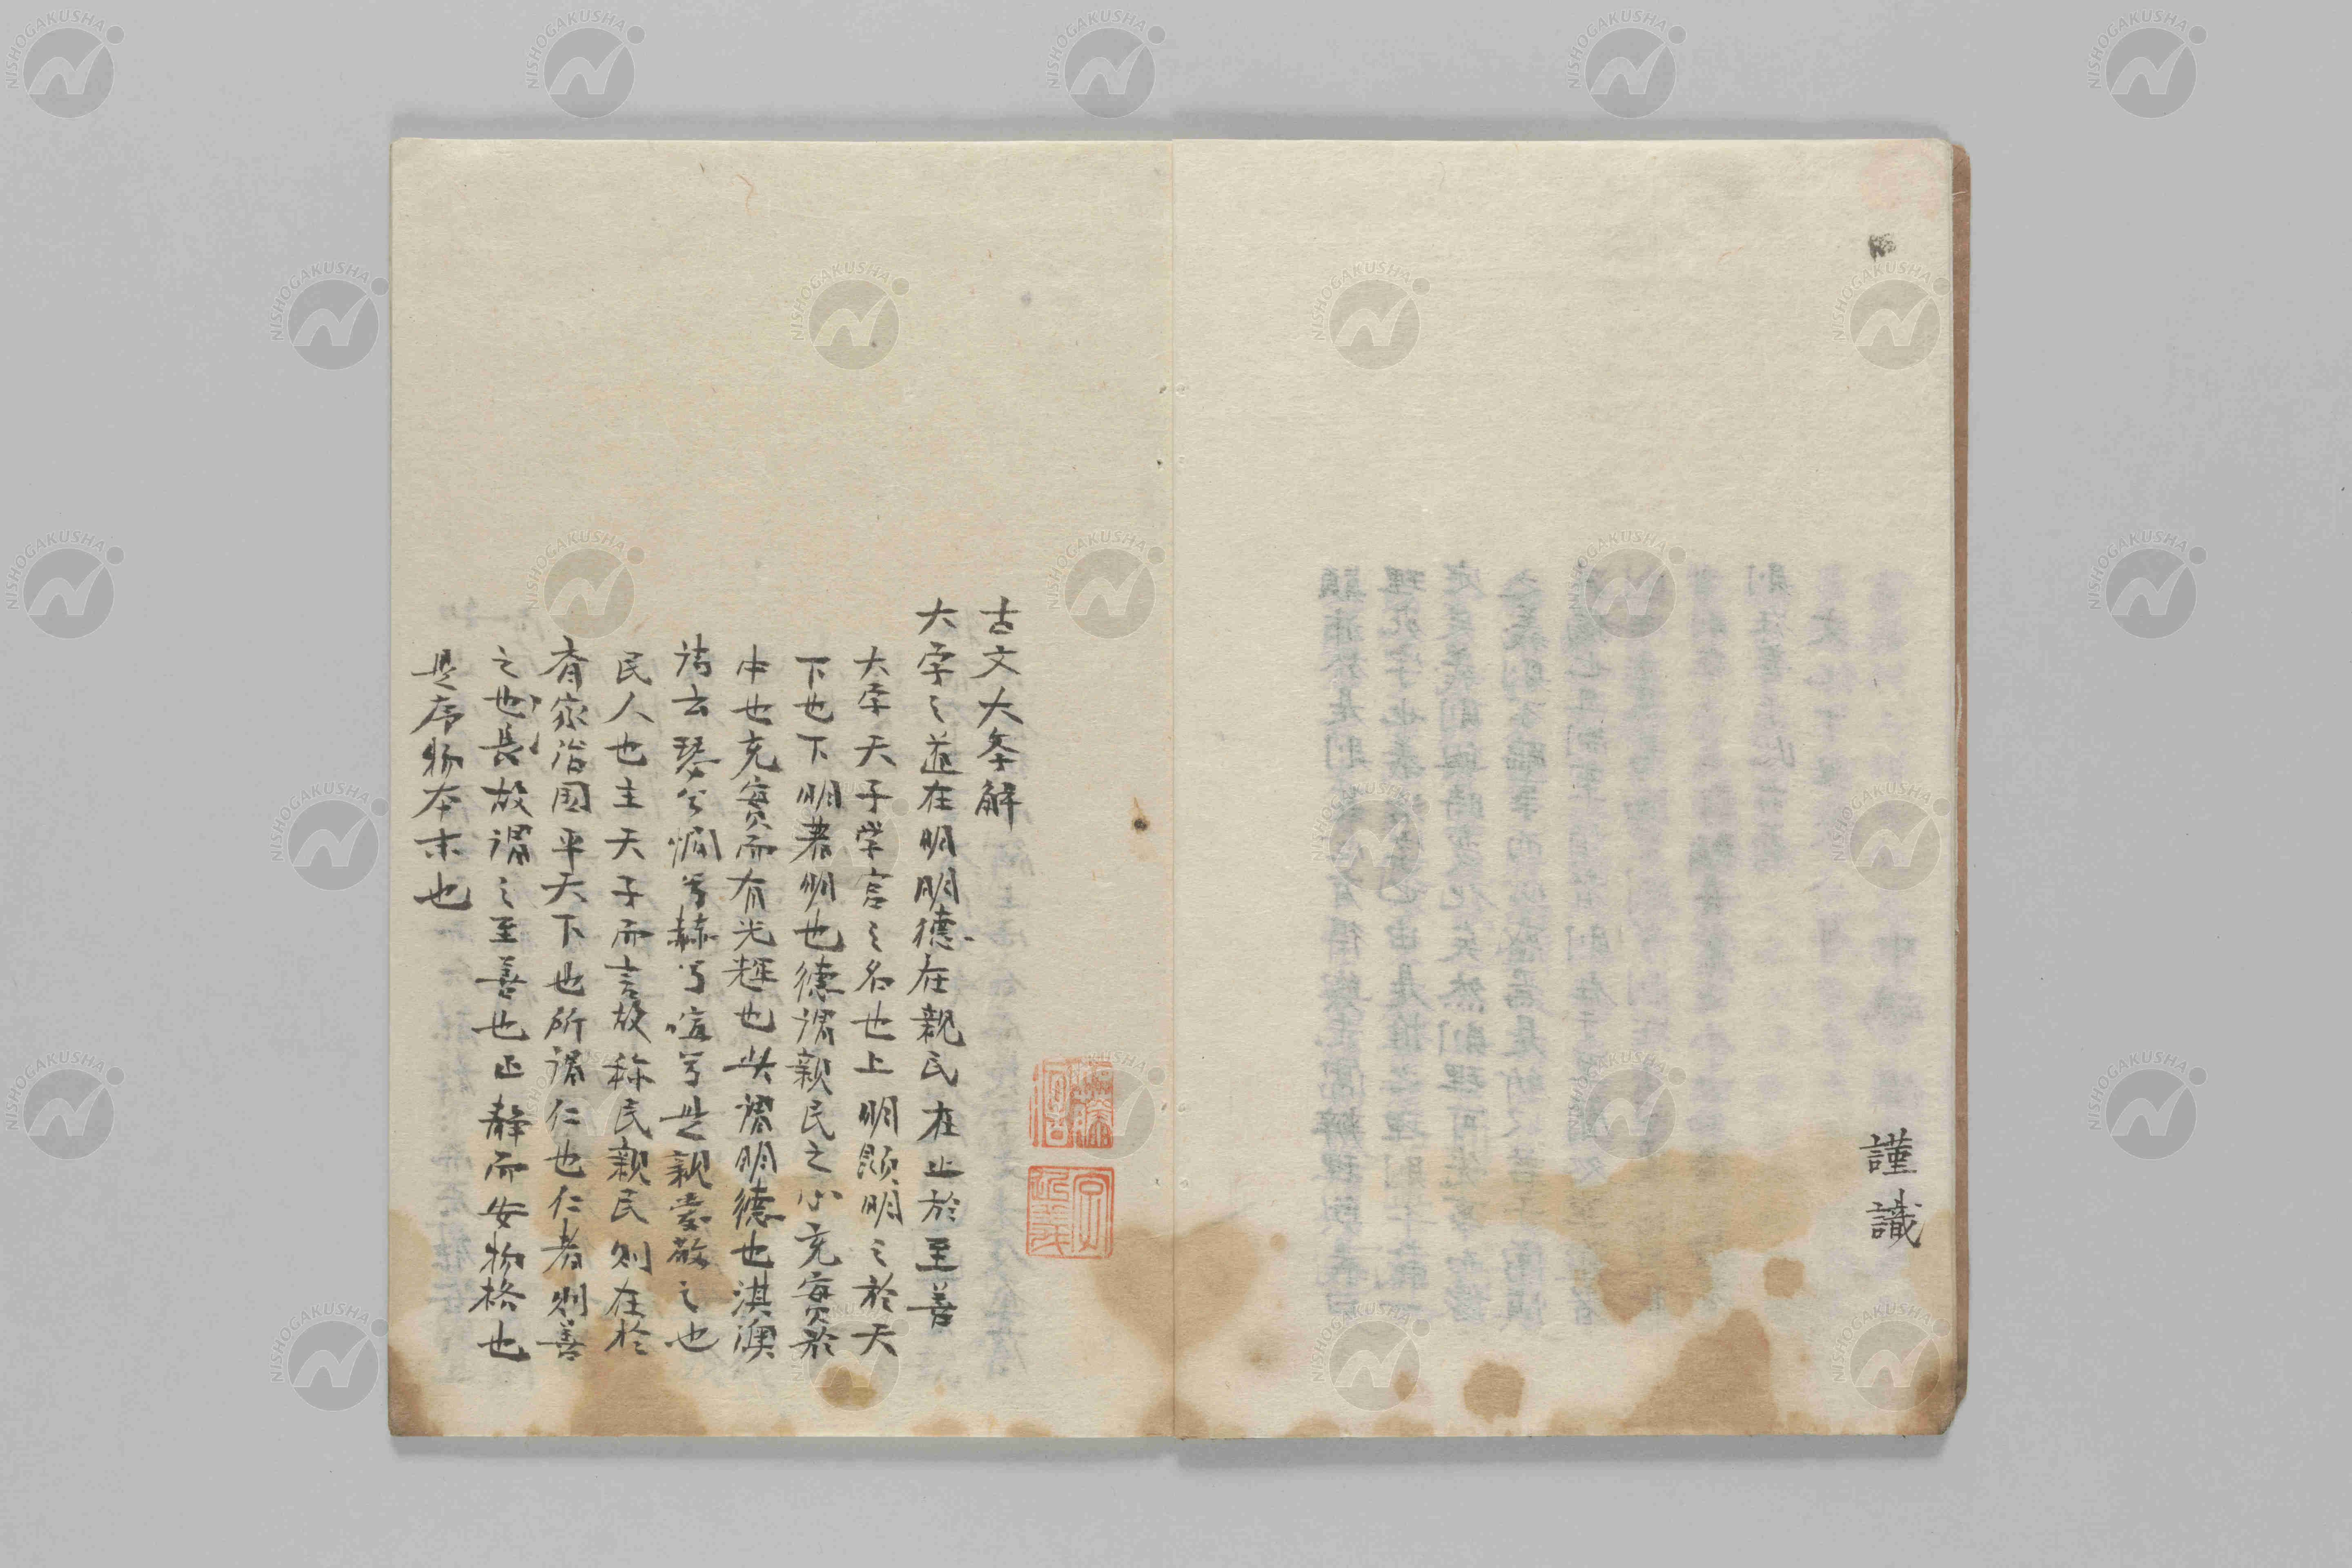 謹識
古文大斈解
大斈之道在明明德在親民在止於至善
大斈天子学宮之名也上明顕明之於天
下也下明著明也德謂親民之小充實於
中也充實而有光輝也此謂明德也淇澳
詩云瑟兮僩兮赫兮喧兮是親愛敬之也
民人也主天子而言故称民親民則在於
斉家治国平天下也所謂仁也仁者則善
之也長故謂之至善也正静而安物格也
是序物本末也
NISHOGAKUSHA